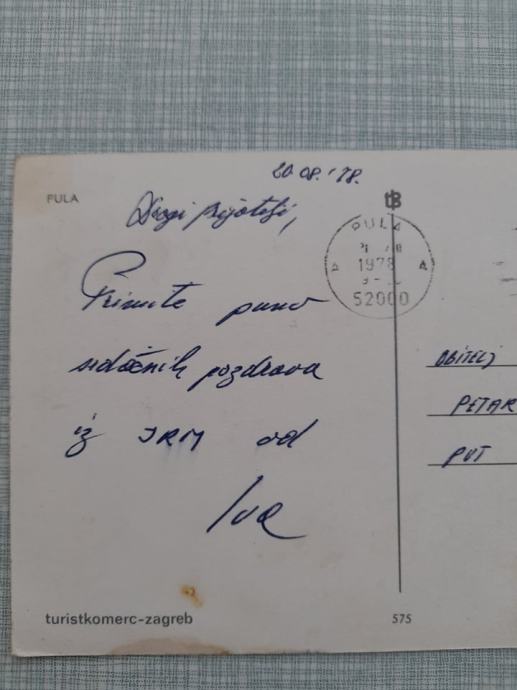 20.08.'78.
PULA
Dragi prijatelji,
PULA
1978
52000
Primite puno
srdačnih pozdrava
iz JRM od
Iva
OBITELJ
PETAR
PUT
turistkomerc-zagreb
575